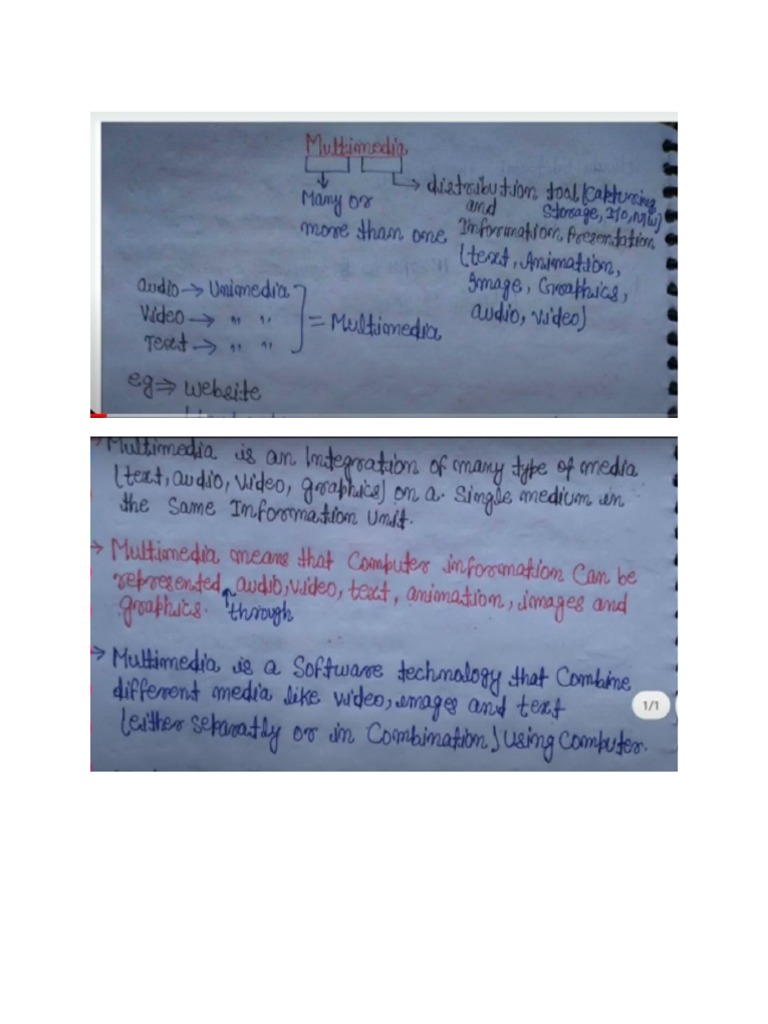 Multimedia
Many or
more than one
distribution tool (Capturing
and Storage, I/O, N/W)
Information Presentation
(text, Animation,
Image, Graphics,
audio, video)
audio → Unimedia
Video → " "
Text → " "
= Multimedia
eg ⇒ website
→ Multimedia is an Integration of many type of media
(text, audio, video, graphics) on a single medium in
the Same Information Unit.
→ Multimedia means that Computer information Can be
represented through audio, video, text, animation, images and
graphics.
→ Multimedia is a Software technology that Combine
different media like video, images and text
(either Separatly or in Combination) Using Computer.
1/1